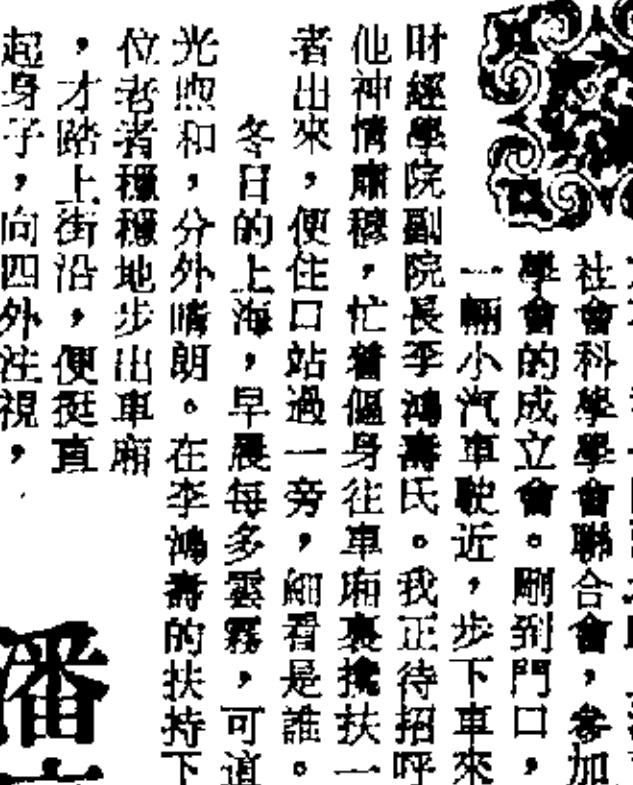 社會科學學會聯合會，參加
學會的成立會。剛到門口，
一輛小汽車駛近，步下車來
財經學院副院長李鴻壽氏。我正待招呼
他神情肅穆，忙着傴身往車廂裏攙扶一
者出來，便住口站過一旁，細看是誰。
冬日的上海，早晨每多雲霧，可道
光煦和，分外晴朗。在李鴻壽的扶持下
位老者穩穩地步出車廂
，才踏上街沿，便挺直
起身子，向四外注視，
潘